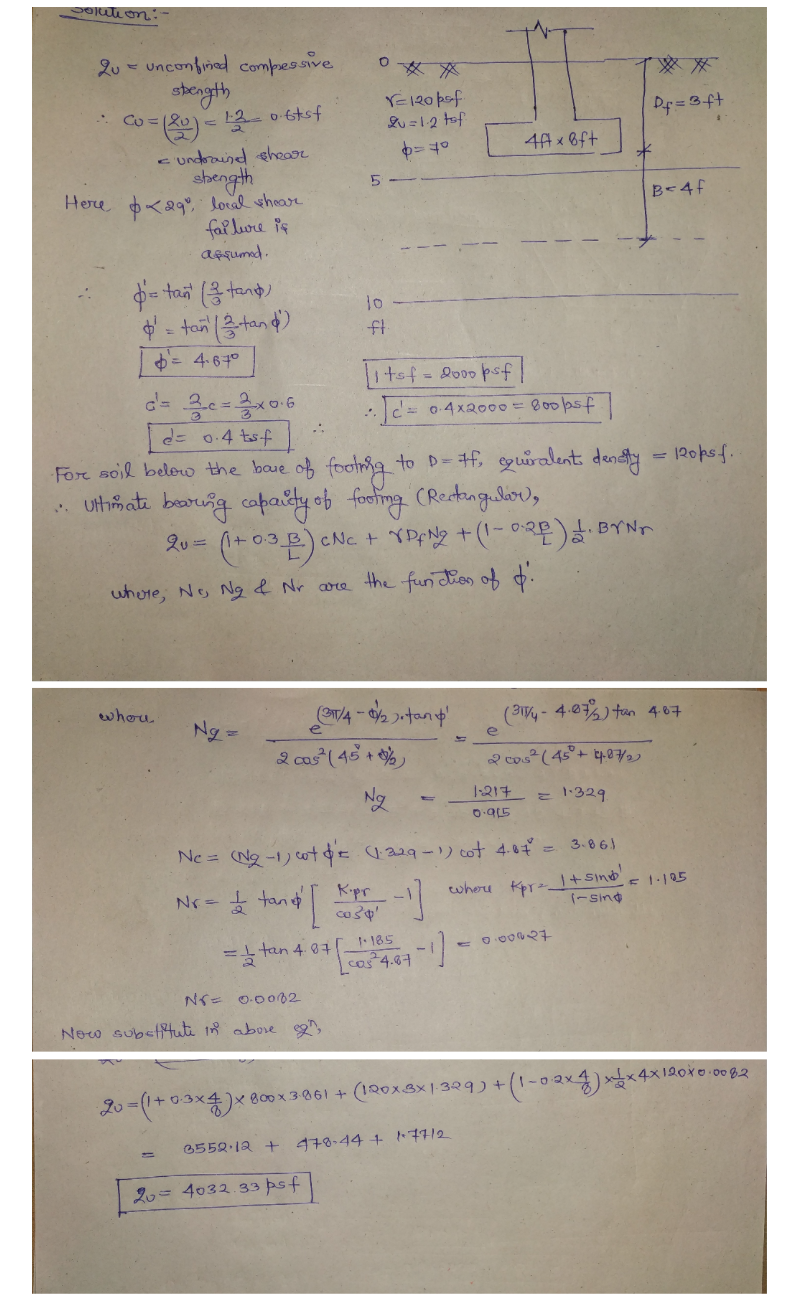 Solution:-
qu = unconfined compressive
strength
∴ Cu = (qu/2) = 1.2/2 = 0.6tsf
= undrained shear
strength
Here ϕ < 29°, local shear
failure is
assumed.
0
γ=120psf
qu=1.2 tsf
ϕ=7°
4ft x 8ft
Df=3ft
5
B=4f
10
ft
∴ ϕ'=tan⁻¹(2/3 tanϕ)
ϕ'=tan⁻¹(2/3 tanϕ')
ϕ'= 4.67°
c'= 2/3 c = 2/3 x 0.6
c'= 0.4 tsf ∴
1 tsf = 2000psf
∴ c'= 0.4x2000= 800psf
For soil below the base of footing to D=7f, equivalents density = 120psf.
∴ Ultimate bearing capaicty of footing (Rectangular),
qu= (1+0.3 B/L) cNc + γDfNq + (1-0.2B/L) 1/2. BγNr
where, Nc, Nq & Nr are the function of ϕ'.
where, Nq = e^(3π/4 - ϕ'/2).tanϕ' / 2cos²(45°+ϕ'/2) = e^(3π/4 - 4.87°/2) tan 4.87 / 2cos²(45°+4.87/2)
Nq = 1.217/0.915 = 1.329
Nc = (Nq-1) cotϕ' = (1.329-1) cot 4.87° = 3.861
Nr = 1/2 tanϕ' [Kpr/cos²ϕ' -1] where Kpr= 1+sinϕ'/1-sinϕ = 1.185
= 1/2 tan 4.87 [1.185/cos²4.87 -1] = 0.00827
Nr= 0.0082
Now substitute in above eqⁿ,
qu=(1+0.3x4/8)x800x3.861+(120x3x1.329)+(1-0.2x4/8)x1/2x4x120x0.0082
= 3552.12 + 478.44 + 1.7712
qu= 4032.33psf